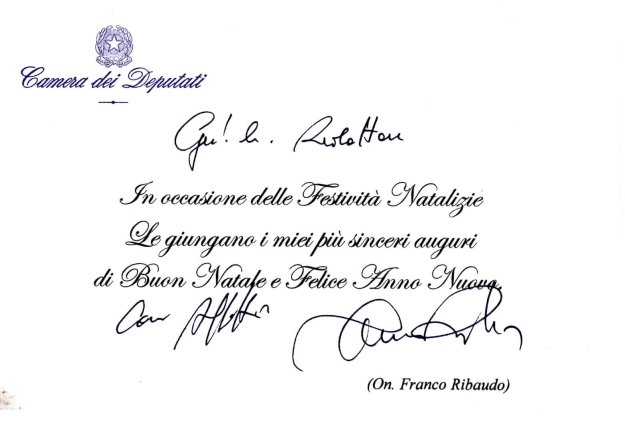 Camera dei Deputati
In occasione delle Festività Natalizie
Le giungano i miei più sinceri auguri
di Buon Natale e Felice Anno Nuovo.
con affetto
(On. Franco Ribaudo)